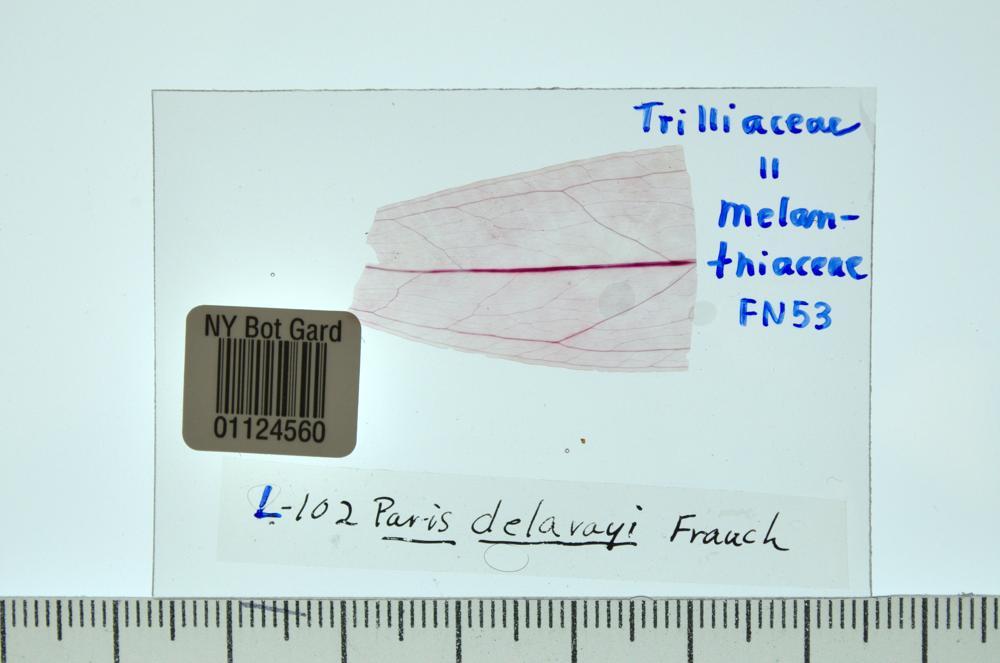 Trilliaceae
=
melan-
thiaceae
FN53
NY Bot Gard
01124560
L-102 Paris delavayi Franch